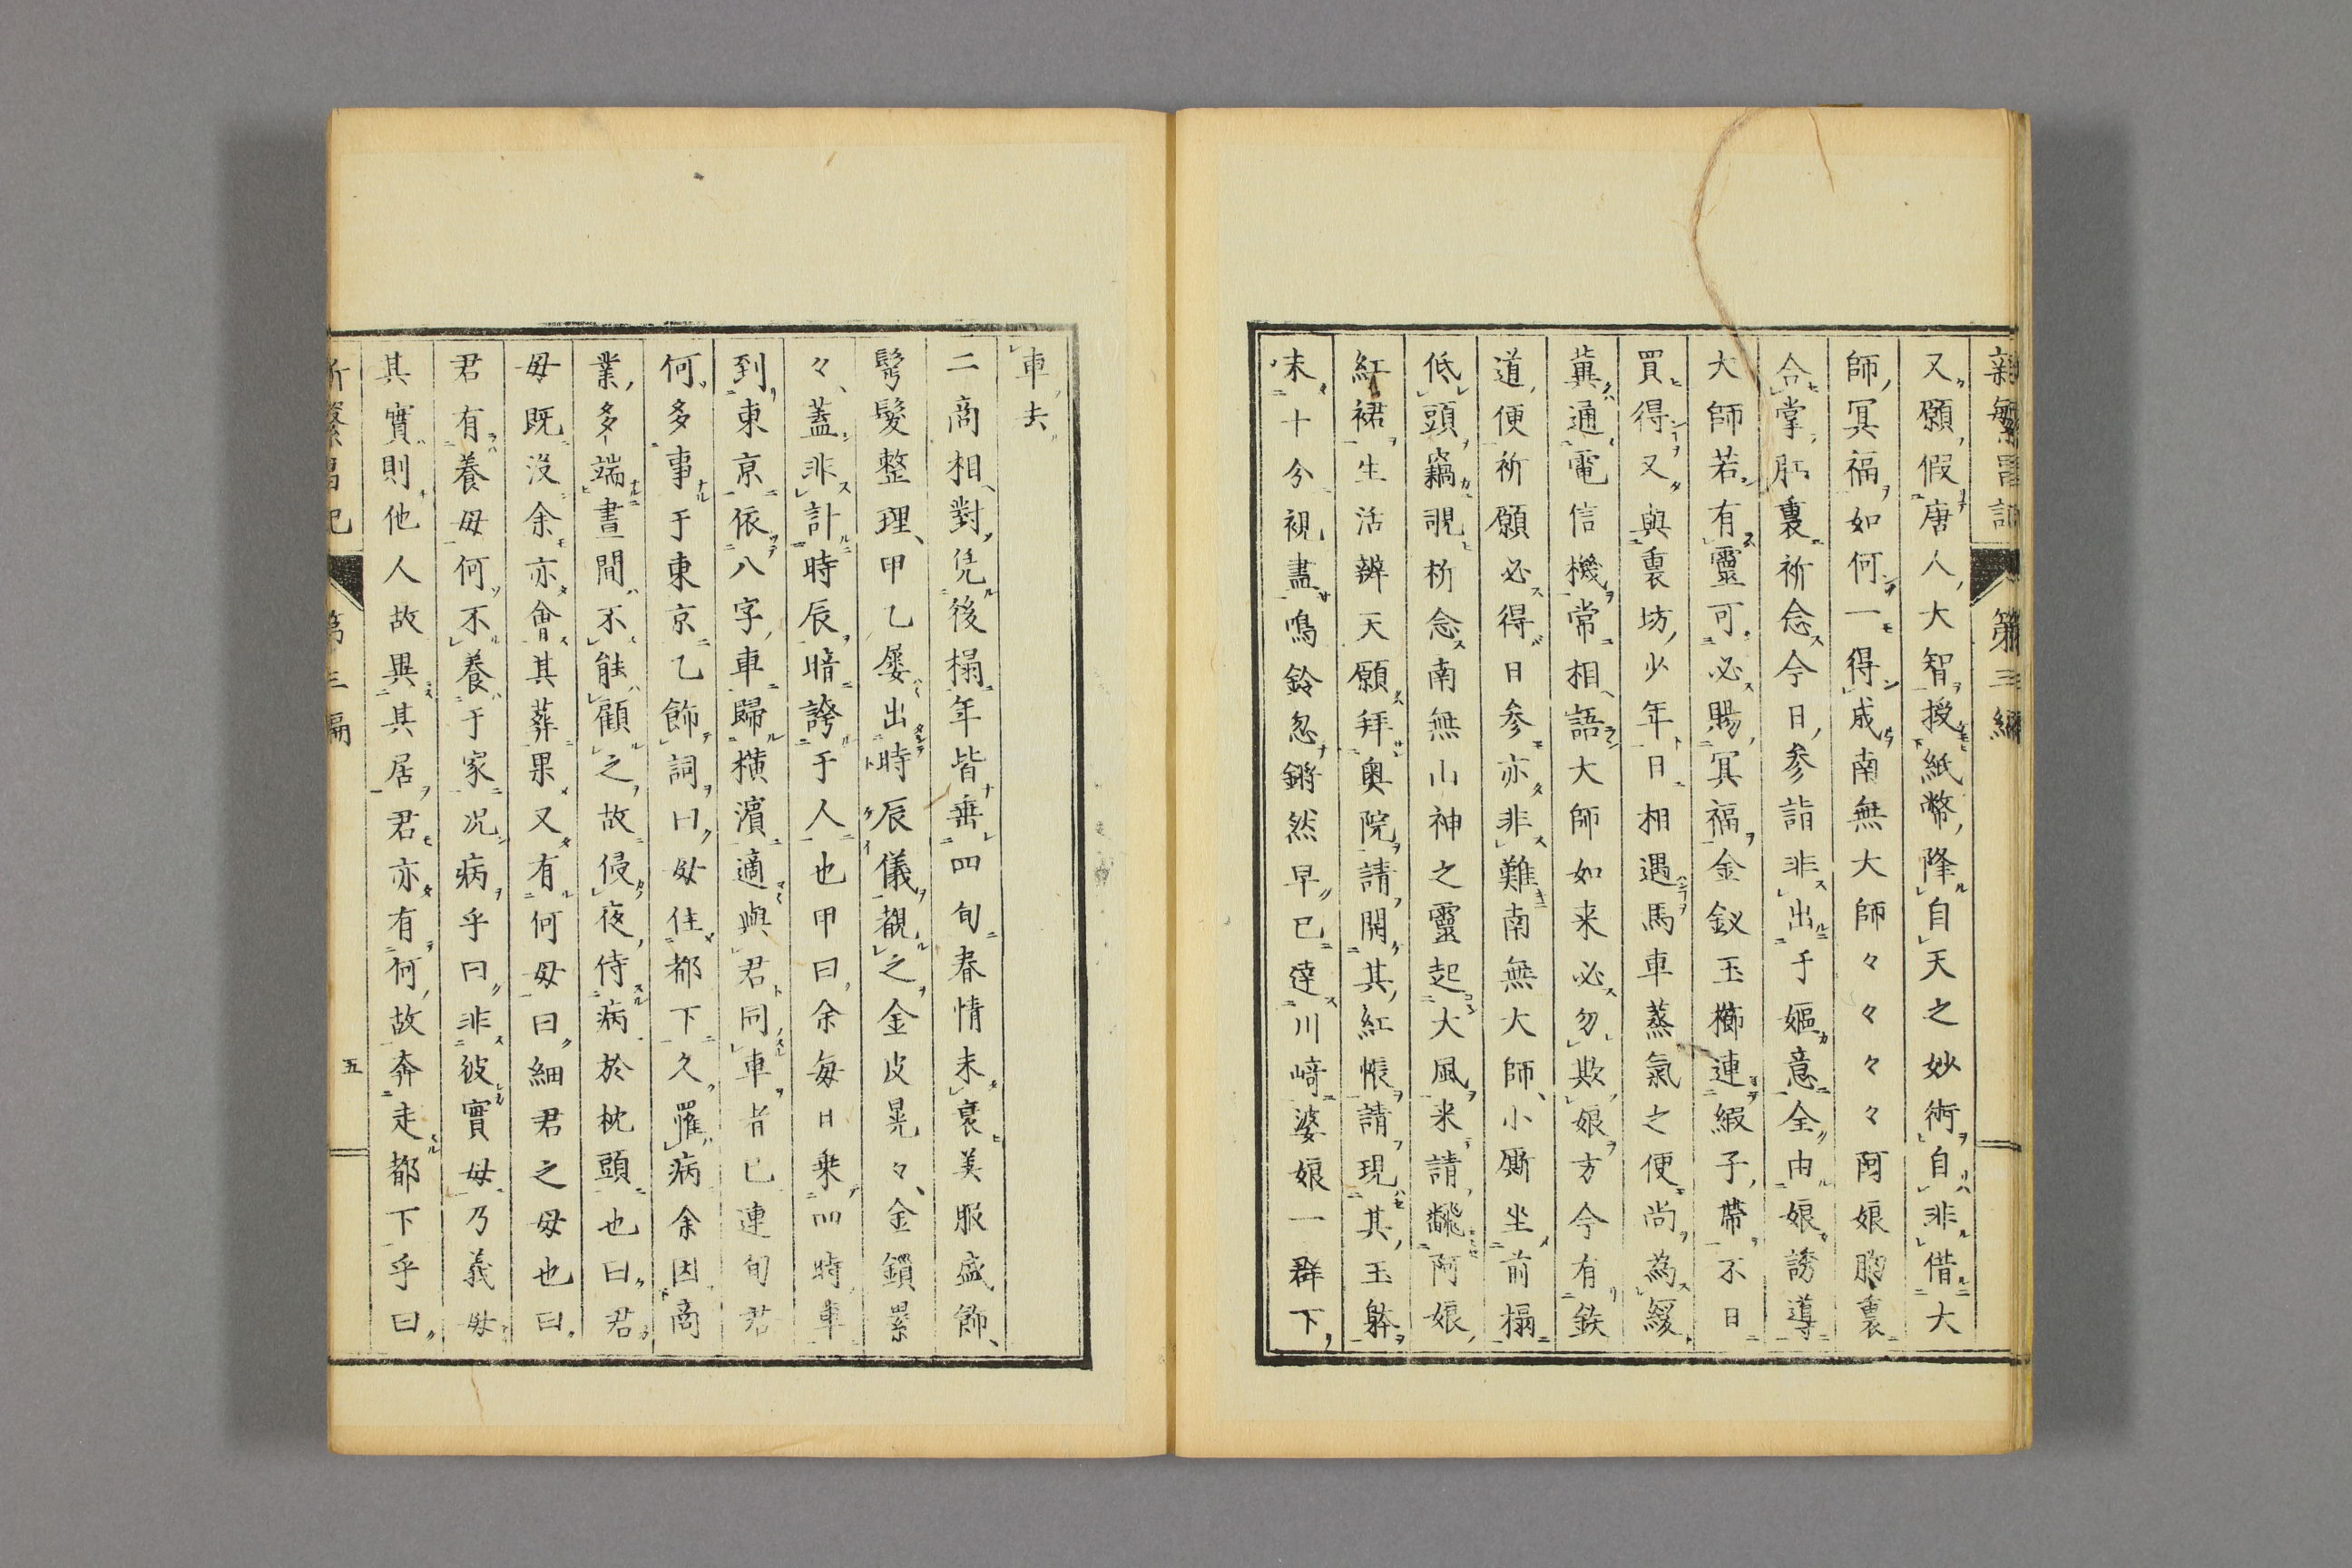 新繁昌記 第三編
又願假唐人大智授紙幣降自天之妙術自非借大
師冥福如何一得成南無大師々々々々阿娘胸裏
合掌肚裏祈念今日参詣非出于嫗意全由娘誘導
大師若有靈可必賜冥福金釵玉櫛連緞子帶不日
買得又與裏坊少年日相遇馬車蒸氣之便尚為緩
冀通電信機常相語大師如来必勿欺娘方今有鉄
道便祈願必得日参亦非難南無大師小厮坐前榻
低頭竊覗祈念南無山神之靈起大風来請飜阿娘
紅裙生活辨天願拜奥院請開其紅帳請現其玉躰
未十分視盡鳴鈴忽鏘然早已達川﨑婆娘一群下
車去
二商相對凭後榻年皆垂四旬春情未衰美服盛飾
鬢髪整理甲乙屡出時辰儀觀之金皮晃々金鎖累
々蓋非計時辰暗誇于人也甲曰余毎日乘四時車
到東京依八字車歸横濱適與君同車者已連旬君
何多事于東京乙飾詞曰母住都下久罹病余因商
業多端晝間不能顧之故侵夜侍病於枕頭也曰君
母既沒余亦會其葬果又有何母曰細君之母也曰
君有養母何不養于家况病乎曰非彼實母乃義母
其實則他人故異其居君亦有何故奔走都下乎曰
新繁昌記 第三編 五